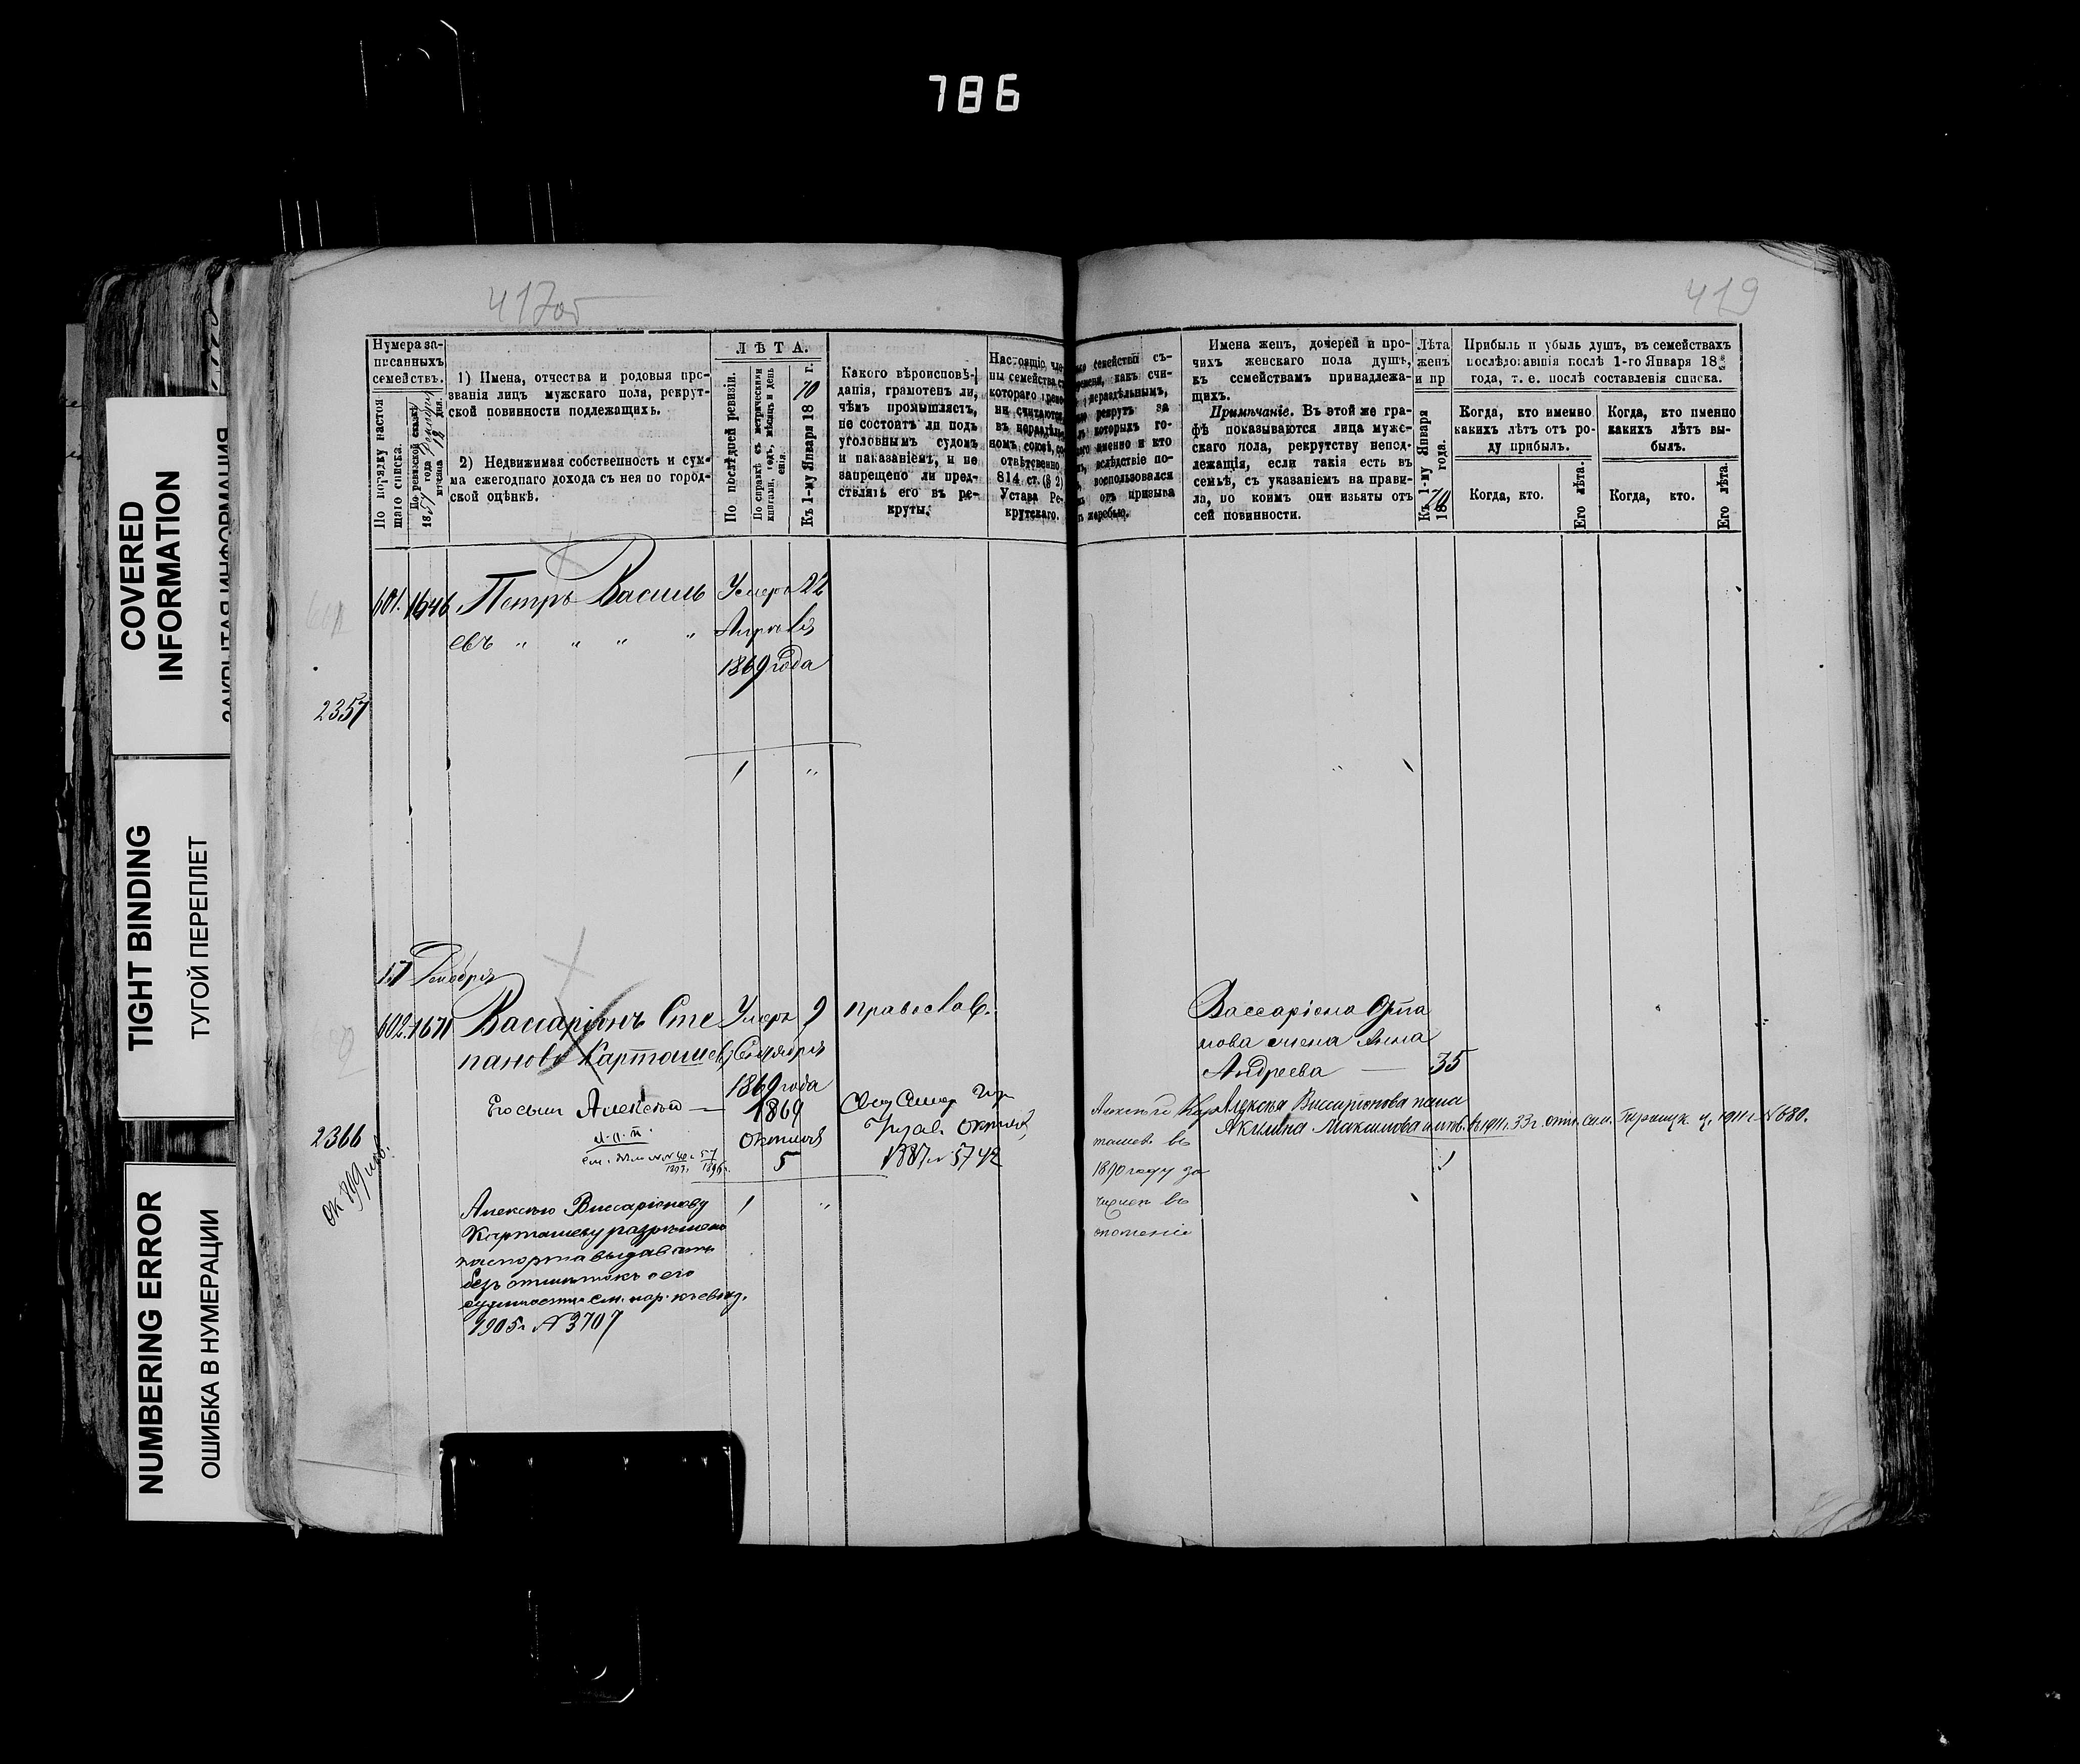 786
COVERED
INFORMATION
ЗАКРЫТАЯ ИНФОРМАЦИЯ
TIGHT BINDING
ТУГОЙ ПЕРЕПЛЕТ
NUMBERING ERROR
ОШИБКА В НУМЕРАЦИИ
417об
Нумера за-
писанныхъ
семействъ.
По порядку настоя
щаго списка.
По ревизской сказкѣ
1857 года
мѣсяца 18 дня.
1) Имена, отчества и родовыя про-
званія лицъ мужскаго пола, рекрут-
ской повинности подлежащихъ.
2) Недвижимая собственность и сум-
ма ежегоднаго дохода съ нея по город-
ской оцѣнкѣ.
ЛѢТА.
По послѣдней ревизіи.
По справкѣ съ метрическими
книгами, годъ, мѣсяцъ и день
Къ 1-му Января 1870 г.
Какого вѣроисповѣ-
данія, грамотенъ ли,
чѣмъ промышляетъ,
не состоитъ ли подъ
уголовнымъ судомъ
и наказаніемъ, и не
запрещено ли пред-
ставлять его въ ре-
круты.
Настоящіе чле
ны семейства
котораго
ни считаются
въ нераздѣль
номъ союзѣ,
отвѣтственно
814 ст. (§ 2)
Устава Ре-
крутскаго.
601. 1646 Петръ Василь
евъ " " " "
Умеръ 22
Апрѣля
1869 года
2357
1 "
17 Декабря
602. 1671 Вассаріонъ Сте
пановъ Карташевъ
Умеръ 9
Сентября
1869 года
православ.
Его сынъ Алексѣй —
1869
октября
5
1887 № 5742
2366
Алексѣю Виссаріонову
Карташеву разрѣшено
паспорта выдавать
безъ отмѣтокъ о его
судимости см. нар.
1905 г. № 3707
1 "
419
семействѣ съ-
времени, какъ счи-
нераздѣльнымъ,
рекрутъ за
которыхъ го-
именно и кто
вслѣдствіе по-
воспользовался
отъ призыва
жеребью.
Имена женъ, дочерей и про-
чихъ женскаго пола душъ,
къ семействамъ принадлежа-
щихъ.
Примѣчаніе. Въ этой же гра-
фѣ показываются лица муже-
скаго пола, рекрутству непод-
лежащія, если такія есть въ
семьѣ, съ указаніемъ на прави-
ла, по коимъ они изъяты отъ
сей повинности.
Лѣта
женъ
и пр
Къ 1-му Января
1870 года.
Прибыль и убыль душъ, въ семействахъ
послѣдовавшія послѣ 1-го Января 18
года, т. е. послѣ составленія списка.
Когда, кто именно
какихъ лѣтъ отъ ро-
ду прибылъ.
Когда, кто именно
какихъ лѣтъ вы-
былъ.
Когда, кто.
Его лѣта.
Когда, кто.
Его лѣта.
" 1
Вассаріона Степа
нова жена Анна
Андреева — 35
Алексѣя Виссаріонова жена
Акилина Максимова
1911 г. № 680.
Алексѣй Кар
ташев въ
1890 году за
численъ въ
ополченіе
1